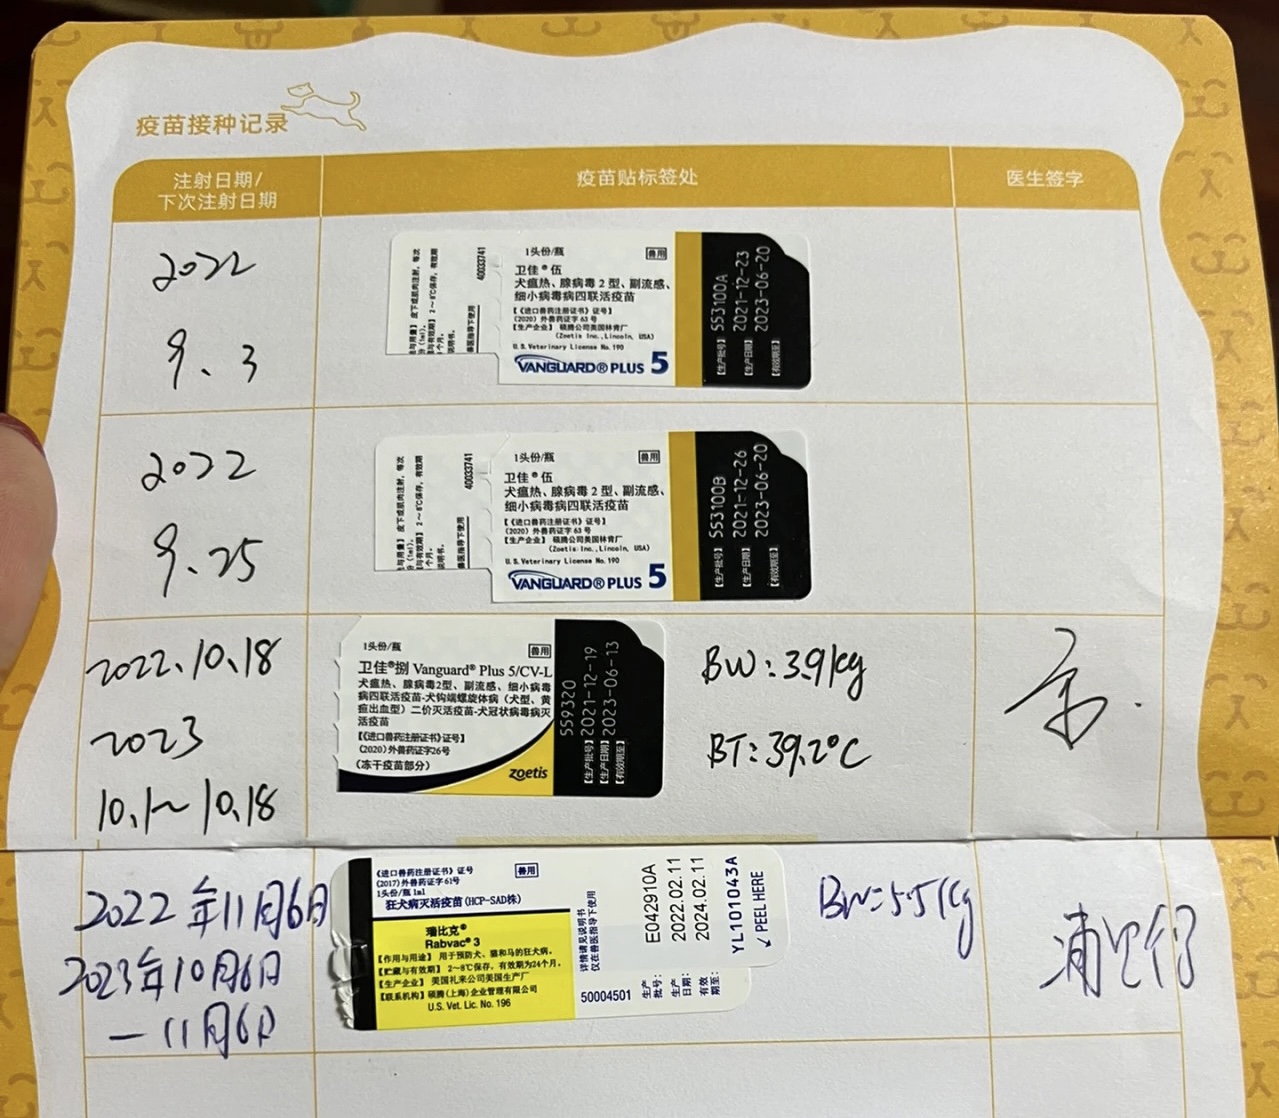 疫苗接种记录
注射日期/
下次注射日期
疫苗贴标签处
医生签字
2022
9.3
1头份/瓶
兽用
卫佳®伍
犬瘟热、腺病毒2型、副流感、
细小病毒病四联活疫苗
【《进口兽药注册证书》证号】
(2020)外兽药证字63号
【生产企业】硕腾公司美国林肯厂
(Zoetis Inc.,Lincoln, USA)
U.S.Veterinary License No.190
VANGUARD® PLUS 5
40033741
【生产批号】553100A
【生产日期】2021-12-23
【有效期至】2023-06-20
2022
9.25
1头份/瓶
兽用
卫佳®伍
犬瘟热、腺病毒2型、副流感、
细小病毒病四联活疫苗
【《进口兽药注册证书》证号】
(2020)外兽药证字63号
【生产企业】硕腾公司美国林肯厂
(Zoetis Inc.,Lincoln, USA)
U.S.Veterinary License No.190
VANGUARD® PLUS 5
40033741
【生产批号】553100B
【生产日期】2021-12-26
【有效期至】2023-06-20
2022.10.18
2023
10.1~10.18
1头份/瓶
兽用
卫佳®捌 Vanguard® Plus 5/CV-L
犬瘟热、腺病毒2型、副流感、细小病毒
病四联活疫苗-犬钩端螺旋体病(犬型、黄
疸出血型)二价灭活疫苗-犬冠状病毒病灭
活疫苗
【《进口兽药注册证书》证号】
(2020)外兽药证字26号
(冻干疫苗部分)
zoetis
【生产批号】559320
【生产日期】2021-12-19
【有效期至】2023-06-13
BW:3.9kg
BT:39.2°C
2022年11月6日
2023年10月6日
—11月6日
《进口兽药注册证书》证号
(2017)外兽药证字61号
1头份/瓶 1ml
兽用
狂犬病灭活疫苗(HCP-SAD株)
瑞比克®
Rabvac® 3
【作用与用途】用于预防犬、猫和马的狂犬病。
【贮藏与有效期】2~8℃保存,有效期为24个月。
【生产企业】美国礼来公司美国生产厂
【联系机构】硕腾(上海)企业管理有限公司
U.S. Vet. Lic. No. 196
详情请见说明书
仅在兽医指导下使用
50004501
生产批号: E042910A
生产日期: 2022.02.11
有效期至: 2024.02.11
YL101043A
PEEL HERE
BW:5.5kg